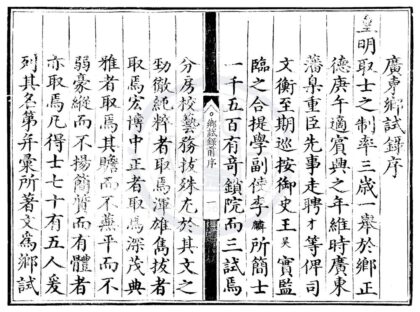 廣東鄉試錄序
皇明取士之制率三歲一舉於鄉正
德庚午適賓興之年維時廣東
藩臬重臣先事走聘才等俾司
文衡至期巡按御史王吴寔監
臨之合提學副使李麟所簡士
一千五百有奇鎖院而三試焉
鄉試錄前序
一
分房校藝務拔殊尤於其文之
勁徹純粹者取焉渾雄雋拔者
取焉宏博中正者取焉深茂典
雅者取焉其贍而不蕪平而不
弱豪縱而不揚簡質而有體者
亦取焉凡得士七十有五人爰
列其名第并彙所著文為鄉試